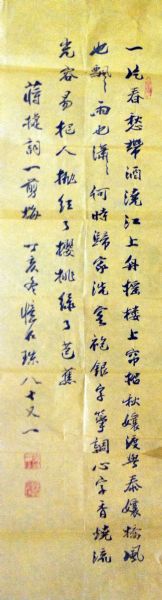 一片春愁帶酒澆江上舟搖樓上帘招秋孃渡與泰孃橋風
也飄〻雨也瀟〻何時歸家洗客袍銀字箏調心字香燒流
光容易把人拋紅了櫻桃綠了芭蕉
蔣捷詞一剪梅 丁亥冬 石珠八十又一